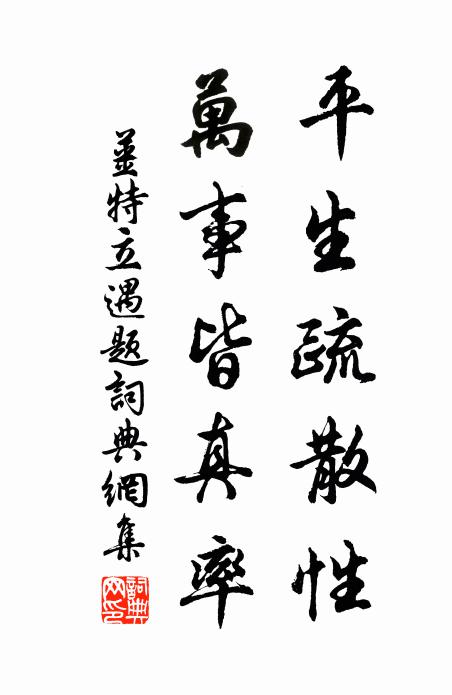 平生疏散性
萬事皆真率
姜特立遇題詞典網集
詞典網印